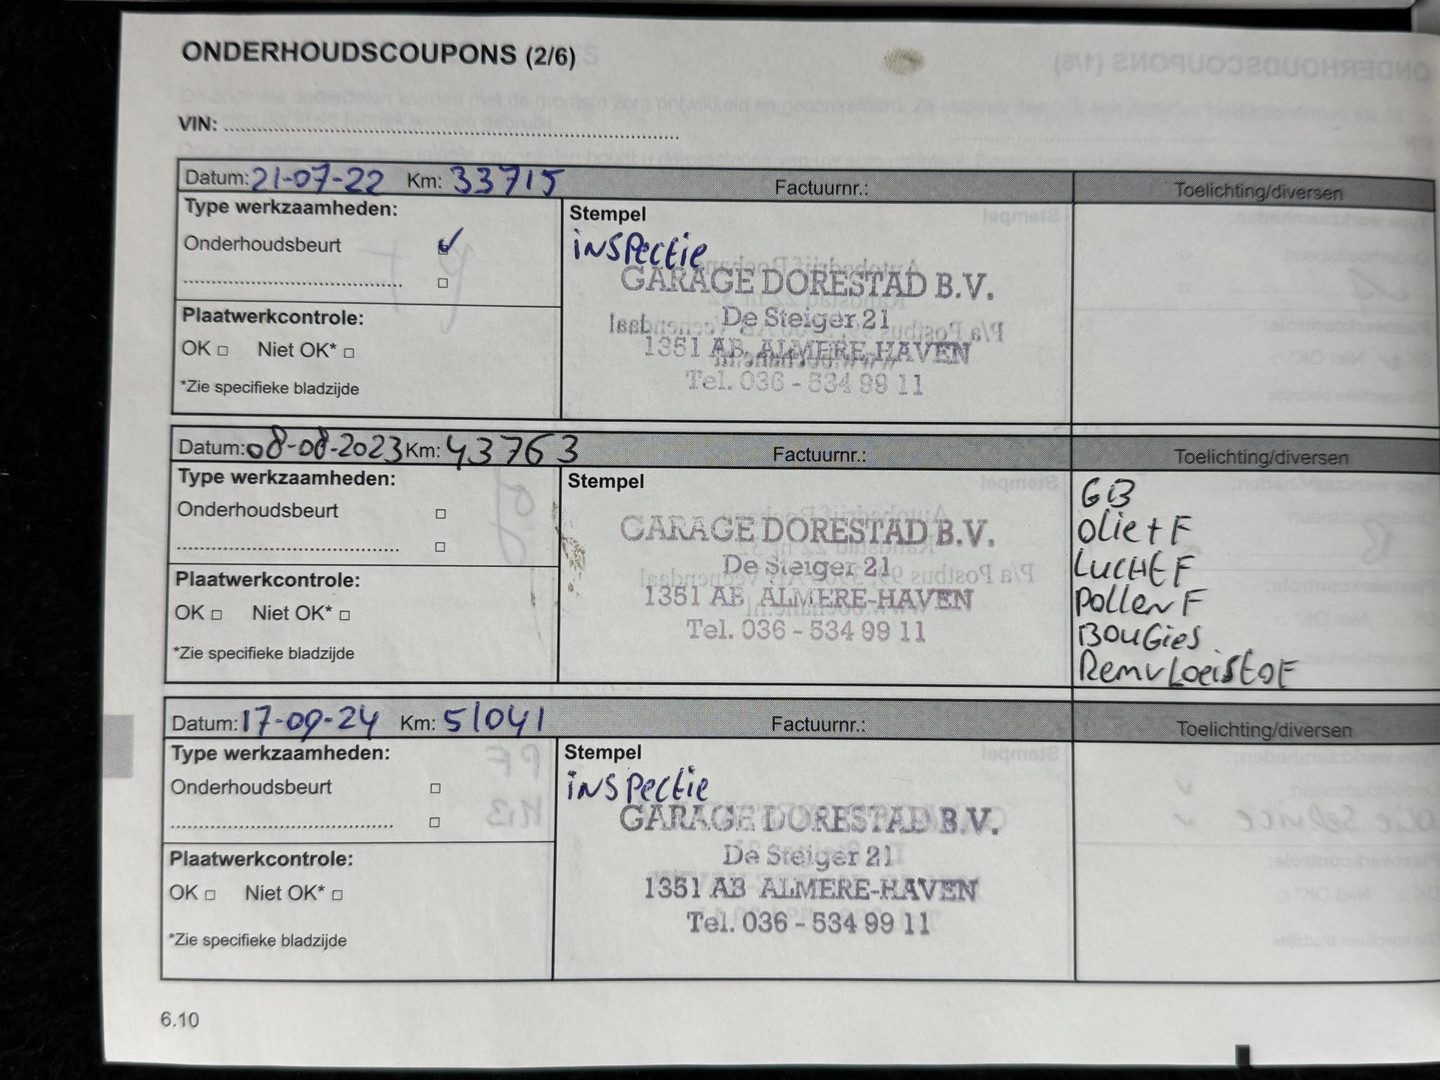 ONDERHOUDSCOUPONS (2/6)
VIN: ................................................................
Datum: 21-07-22 Km: 33715 Factuurnr.: Toelichting/diversen
Type werkzaamheden:
Stempel
Onderhoudsbeurt
inspectie
GARAGE DORESTAD B.V.
De Steiger 21
1351 AB ALMERE-HAVEN
Tel. 036 - 534 99 11
Plaatwerkcontrole:
OK Niet OK*
*Zie specifieke bladzijde
Datum: 08-08-2023 Km: 43763 Factuurnr.: Toelichting/diversen
Type werkzaamheden:
Stempel
Onderhoudsbeurt
GARAGE DORESTAD B.V.
De Steiger 21
1351 AB ALMERE-HAVEN
Tel. 036 - 534 99 11
GB
olie + F
Lucht F
pollen F
Bougies
Remvloeistof
Plaatwerkcontrole:
OK Niet OK*
*Zie specifieke bladzijde
Datum: 17-09-24 Km: 51041 Factuurnr.: Toelichting/diversen
Type werkzaamheden:
Stempel
Onderhoudsbeurt
inspectie
GARAGE DORESTAD B.V.
De Steiger 21
1351 AB ALMERE-HAVEN
Tel. 036 - 534 99 11
Plaatwerkcontrole:
OK Niet OK*
*Zie specifieke bladzijde
6.10